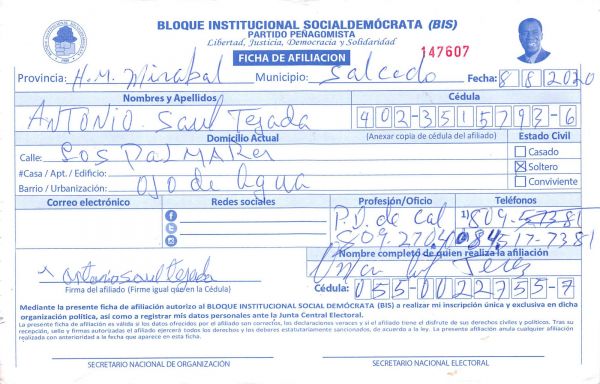 BLOQUE INSTITUCIONAL SOCIALDEMÓCRATA (BIS)
PARTIDO PEÑAGOMISTA
Libertad, Justicia, Democracia y Solidaridad
FICHA DE AFILIACION
147607
Provincia: H.M. Mirabal Municipio: Salcedo Fecha: 8 8 2020
Nombres y Apellidos Cédula
ANTONIO Saul Tejada 402-3515793-6
Domicilio Actual (Anexar copia de cédula del afiliado) Estado Civil
Calle: LOS PALMARES Casado
#Casa / Apt. / Edificio: Soltero
Barrio / Urbanización: OJO de Agua Conviviente
Correo electrónico Redes sociales Profesión/Oficio Teléfonos
P.D. de Cal 1)809-
517-7381
Nombre completo de quien realiza la afiliación
Antonio saul tejada
Firma del afiliado (Firme igual que en la Cédula) Cédula: 055-0022755-7
Mediante la presente ficha de afiliación autorizo al BLOQUE INSTITUCIONAL SOCIAL DEMÓCRATA (BIS) a realizar mi inscripción única y exclusiva en dicha
organización política, así como a registrar mis datos personales ante la Junta Central Electoral.
La presente ficha de afiliación es válida si los datos ofrecidos por el afiliado son correctos, las declaraciones veraces y si el afiliado tiene el disfrute de sus derechos civiles y políticos. Tras su
recepción, selle y firmas autorizadas el afiliado ejercerá todos los derechos y los debates estatutariamente sancionados, de acuerdo a la ley. La presente afiliación anula cualquier afiliación
realizada con anterioridad a la fecha que aparece en esta ficha.
SECRETARIO NACIONAL DE ORGANIZACIÓN SECRETARIO NACIONAL ELECTORAL